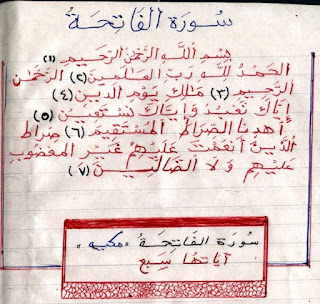 سُورَة الفَاتِحَةُ
بِسْمِ اللَّهِ الرَّحْمٰنِ الرَّحِيمِ (١)
الحَمْدُ لِلَّهِ رَبِّ العَالَمِينَ (٢) الرَّحْمٰنِ
الرَّحِيمِ (٣) مَالِكِ يَوْمِ الدِّينِ (٤)
إِيَّاكَ نَعْبُدُ وَإِيَّاكَ نَسْتَعِينُ (٥)
أَهْدِنَا الصِّرَاطَ المُسْتَقِيمَ (٦) صِرَاطَ
الَّذِينَ أَنْعَمْتَ عَلَيْهِمْ غَيْرِ المَغْضُوبِ
عَلَيْهِمْ وَلَا الضَّالِّينَ (٧)
سُورَة الفَاتِحَةُ «مكيه»
آياتها سَبع